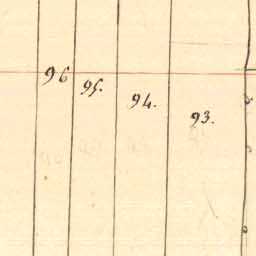 96 95. 94. 93.